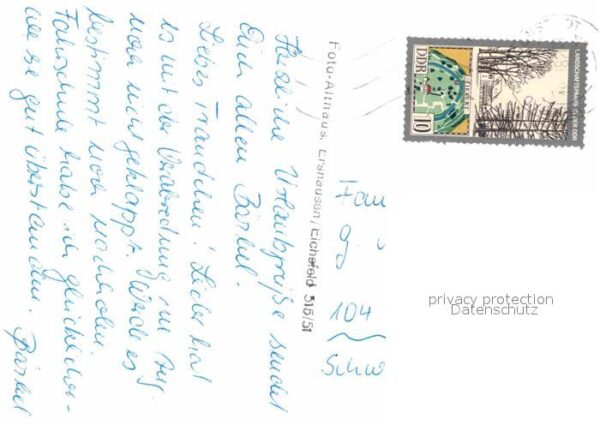 Herzliche Urlaubsgrüße sendet
Euch allen Bärbel.
Liebes Traudchen! Leider hat
es mit der Verabredung im Aug.
noch nicht geklappt. Werde es
bestimmt noch nachholen.
Fahrschule habe ich glücklicher-
weise gut überstanden. Bärbel
Foto-Althaus, Ershausen/Eichsfeld 316/51
Fam
9.
104
Schw
DDR
10
privacy protection
Datenschutz